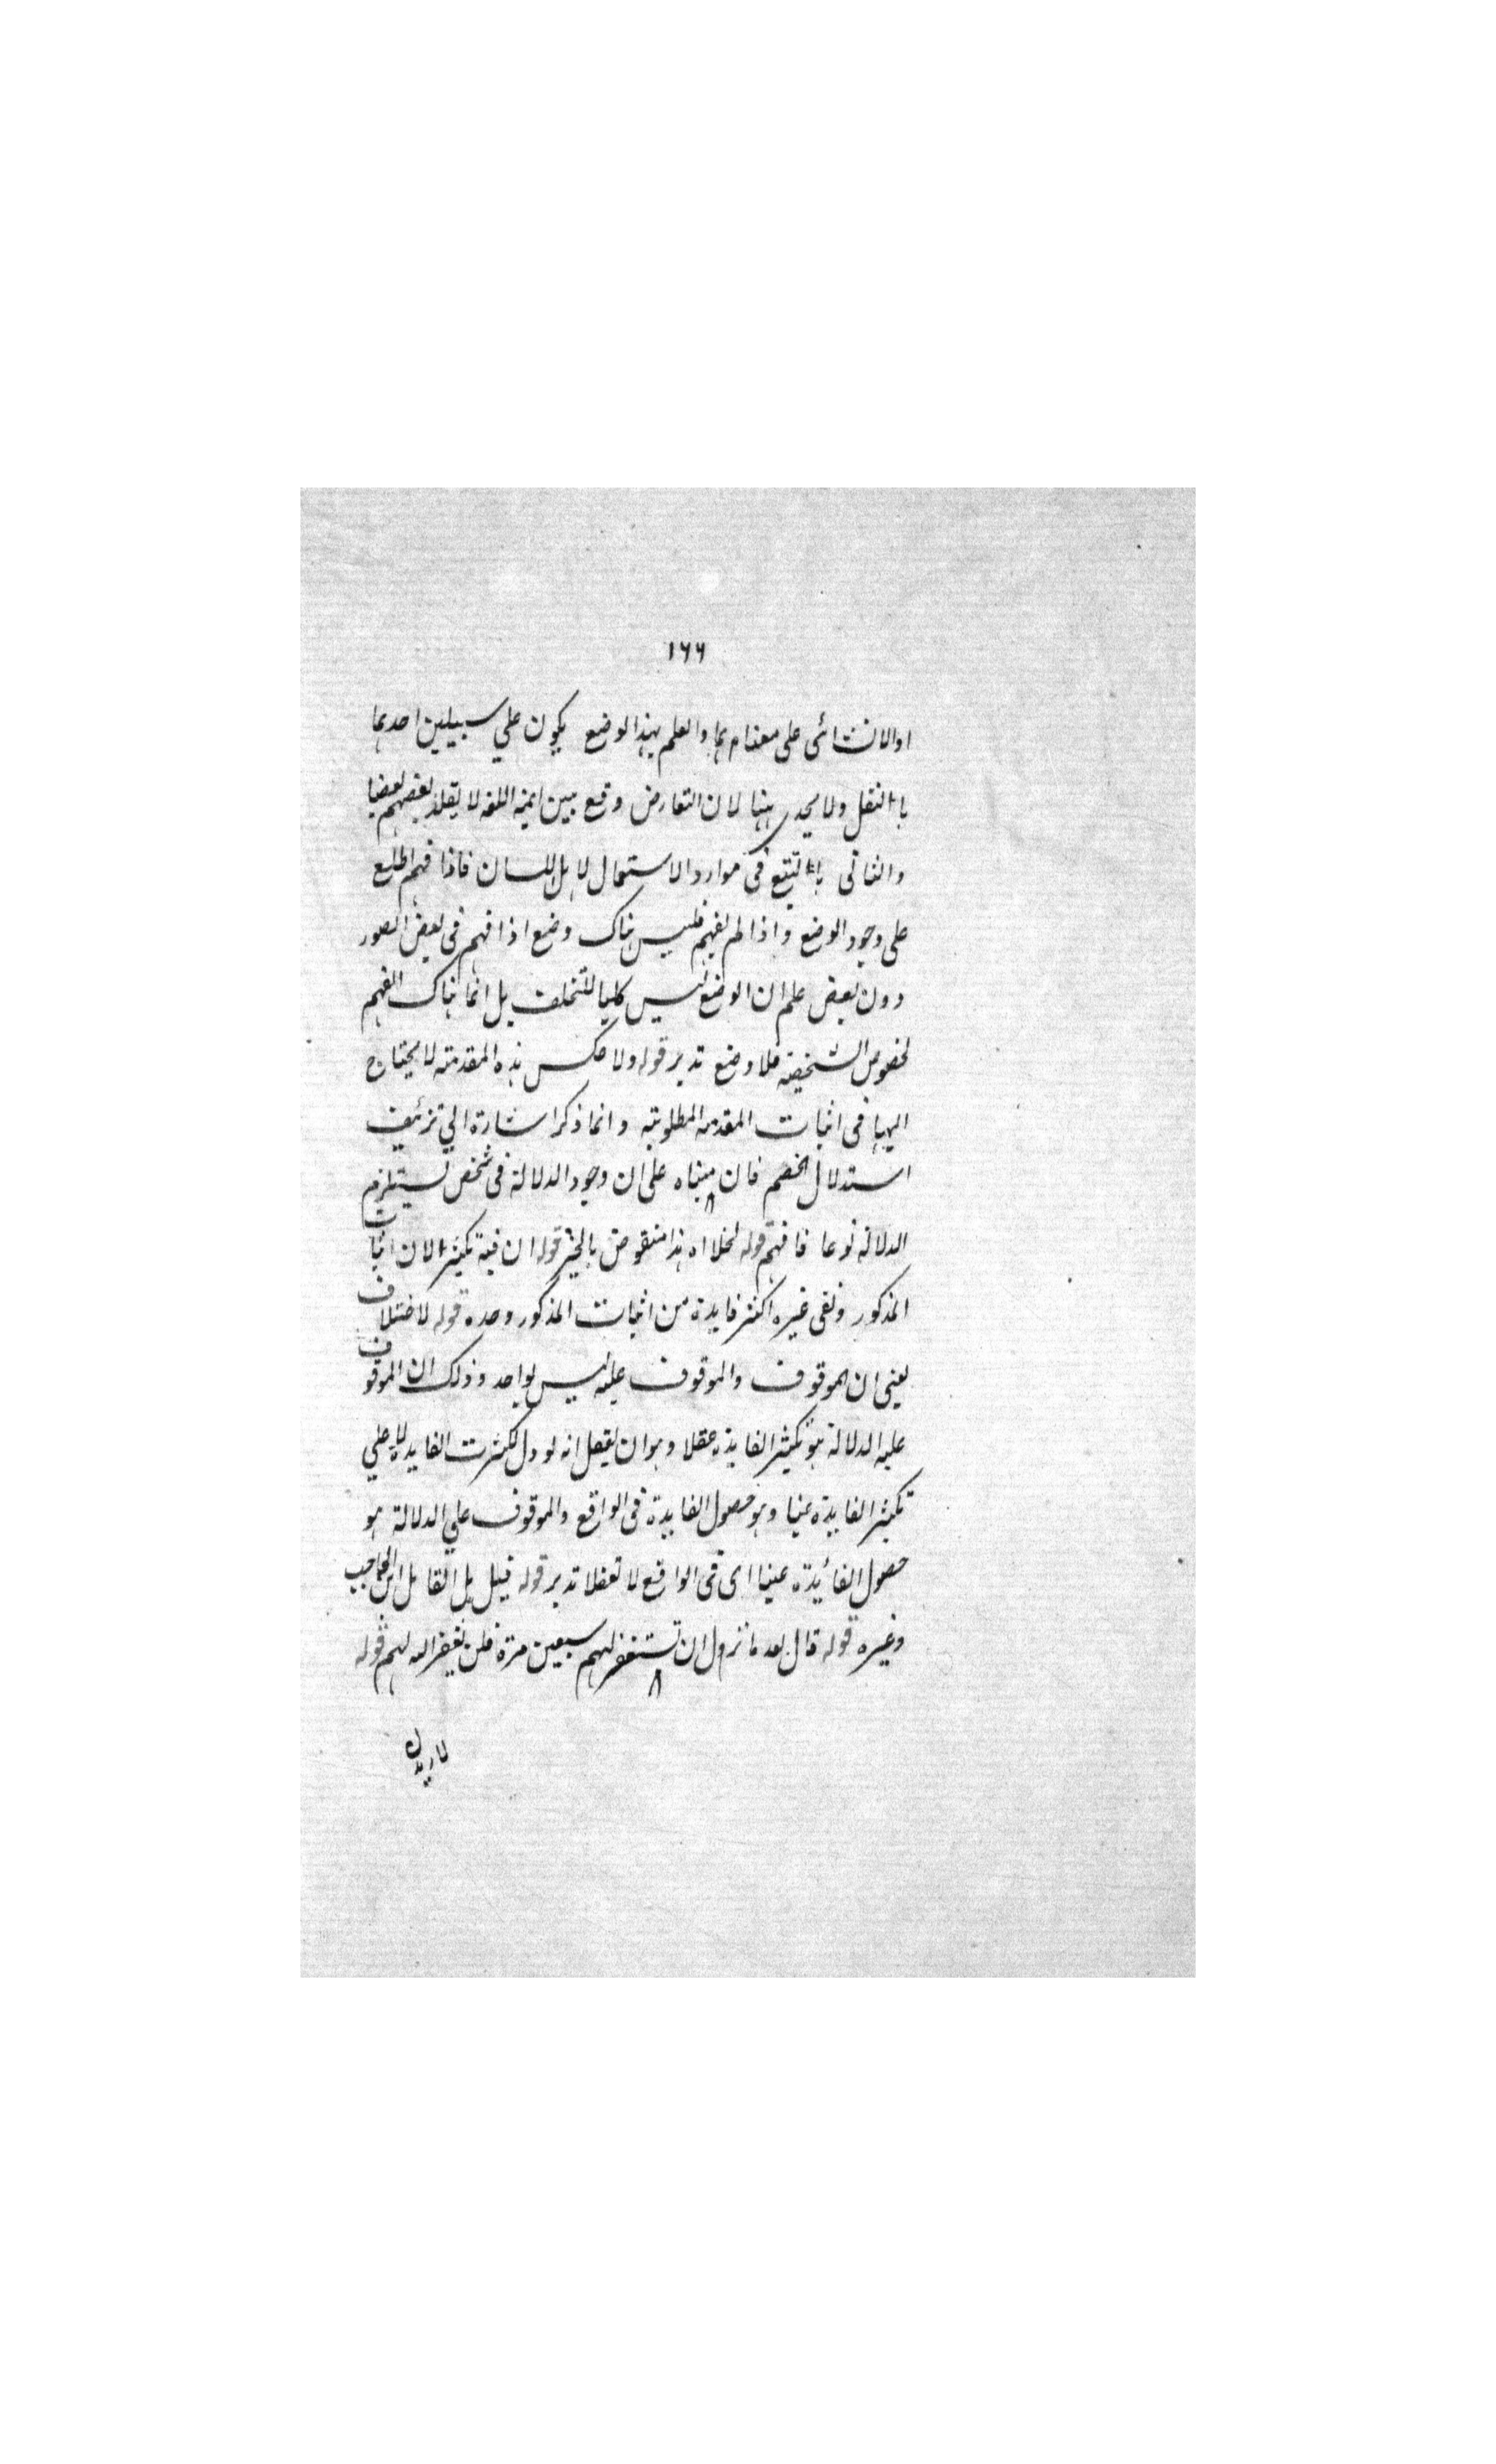 ١٦٦
او الانشائى على معناهما والعلم بهذا الوضع يكون على سبيلين احدهما
بالنقل ولا يجدى ههنا لان التعارض وقع بين ايمة اللغه لا يقلد بعضهم بعضا
والثانى بالتتبع فى موارد الاستعمال لاهل اللسان فاذا فهم اطلع
على وجود الوضع واذا لم يفهم فليس هناك وضع اذا فهم فى بعض الصور
دون بعض علم ان الوضع ليس كليا للتخلف بل انما هناك الفهم
لخصوص الشخصية فلا وضع تدبر قوله ولا عكس هذه المقدمة لا يحتاج
اليها فى اثبات المقدمه المطلوبة وانما ذكر اشارة الي تزئيف
استدلال الخصم فان مبناه على ان وجود الدلالة فى شخص يستلزم
الدلالة نوعا فافهم قوله لخلا اه هذا منقوض بالخبر قوله ان فيه تكثيرا لان اثبات
المذكور ونفى غيره اكثر فايدة من اثبات المذكور وحده قوله لاختلاف
يعنى ان الموقوف والموقوف عليه ليس بواحد وذلك ان الموقوف
عليه الدلالة هو تكثير الفايدة عقلا وهو ان يعقل انه لو دل لكثرت الفايدة لا على
تكثير الفايدة عينا وهو حصول الفايدة فى الواقع والموقوف على الدلالة هو
حصول الفائيدة عينا اى فى الواقع لا تعقلا تدبر قوله قيل بل القايل ابن الحاجب
وغيره قوله قال بعد ما نزول ان تستغفر لهم سبعين مرة فلن يغفر الله لهم قوله
لازيدن